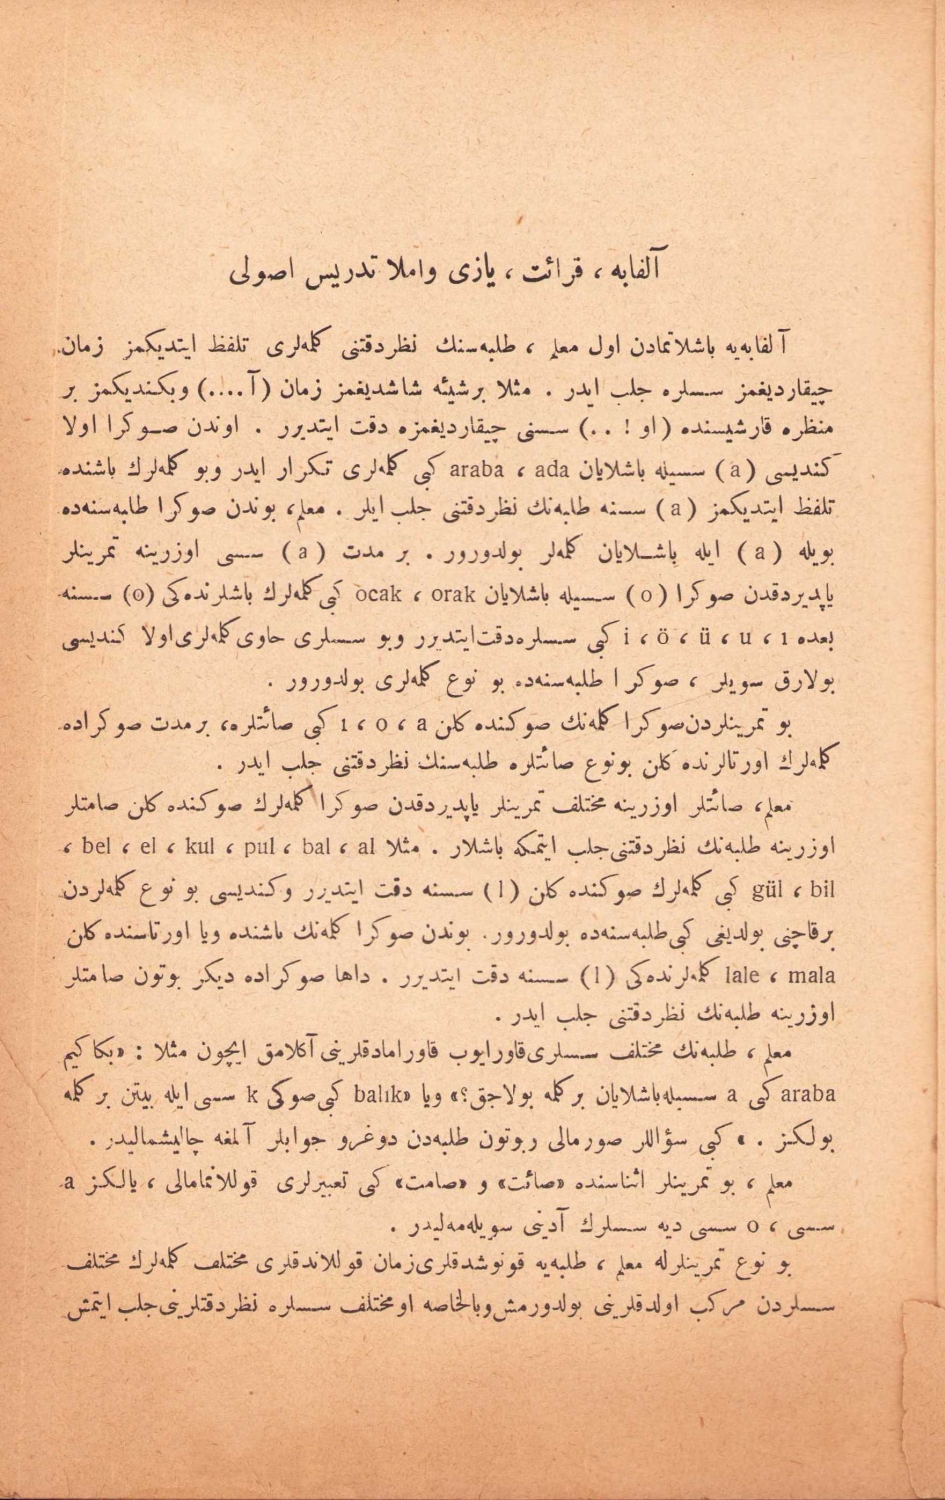 آلفابه ، قرائت ، يازى واملا تدريس اصولى
آلفابه‌يه باشلاتمادن اول معلم ، طلبه‌سنك نظردقتنى كله‌لرى تلفظ ايتديكمز زمان
چيقارديغمز سسلره جلب ايدر . مثلا برشيئه شاشديغمز زمان (آ....) وبكنديكمز بر
منظره قارشيسنده (او ! ..) سسنى چيقارديغمزه دقت ايتديرر . اوندن صوكرا اولا
كنديسى (a) سسيله باشلايان araba ، ada كبى كلمه‌لرى تكرار ايدر وبو كلمه‌لرك باشنده
تلفظ ايتديكمز (a) سسنه طلبه‌نك نظردقتنى جلب ايلر . معلم، بوندن صوكرا طلبه‌سنه‌ده
بويله (a) ايله باشلايان كلمه‌لر بولدورور . بر مدت (a) سسى اوزرينه تمرينلر
ياپديردقدن صوكرا (o) سسيله باشلايان ocak ، orak كبى كلمه‌لرك باشلرنده‌كى (o) سسنه
بعده i ، ö ، ü ، u ، ı كبى سسلره‌دقت‌ايتديرر وبو سسلرى حاوى كلمه‌لرى‌اولا كنديسى
بولارق سويلر ، صوكرا طلبه‌سنه‌ده بو نوع كلمه‌لرى بولدورور .
بو تمرينلردن‌صوكرا كلمه‌نك صوكنده كلن ı ، o ، a كبى صائتلره، برمدت صوكراده
كلمه‌لرك اورتالرنده كلن بونوع صائتلره طلبه‌سنك نظردقتنى جلب ايدر .
معلم، صائتلر اوزرينه مختلف تمرينلر ياپديردقدن صوكرا كلمه‌لرك صوكنده كلن صامتلر
اوزرينه طلبه‌نك نظردقتنى‌جلب ايتمكه باشلار . مثلا bel ، el ، kul ، pul ، bal ، al ،
gül ، bil كبى كلمه‌لرك صوكنده كلن (l) سسنه دقت ايتديرر وكنديسى بو نوع كلمه‌لردن
برقاچنى بولديغى كبى‌طلبه‌سنه‌ده بولدورور. بوندن صوكرا كلمه‌نك باشنده ويا اورتاسنده كلن
lale ، mala كلمه‌لرنده‌كى (l) سسنه دقت ايتديرر . داها صوكراده ديكر بوتون صامتلر
اوزرينه طلبه‌نك نظردقتنى جلب ايدر .
معلم ، طلبه‌نك مختلف سسلرى‌قاورايوب قاورامادقلرينى آكلامق ايچون مثلا : «بكا كيم
araba كبى a سسيله‌باشلايان بر كلمه بولاجق؟» ويا «balık كبى‌صوكى k سسى‌ايله بيتن بر كلمه
بولكز . » كبى سؤاللر صورمالى وبوتون طلبه‌دن دوغرو جوابلر آلمغه چاليشماليدر .
معلم ، بو تمرينلر اثناسنده «صائت» و «صامت» كبى تعبيرلرى قوللانمامالى ، يالكز a
سسى ، o سسى ديه سسلرك آدينى سويله‌مه‌ليدر .
بو نوع تمرينلرله معلم ، طلبه‌يه قونوشدقلرى‌زمان قوللاندقلرى مختلف كلمه‌لرك مختلف
سسلردن مركب اولدقلرينى بولدورمش‌وبالخاصه او مختلف سسلره نظردقتلرينى‌جلب ايتمش